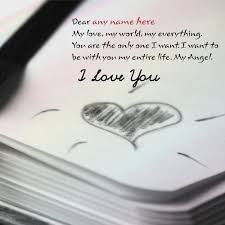 Dear any name here
My love, my world, my everything.
You are the only one I want. I want to
be with you my entire life. My Angel.
I Love You